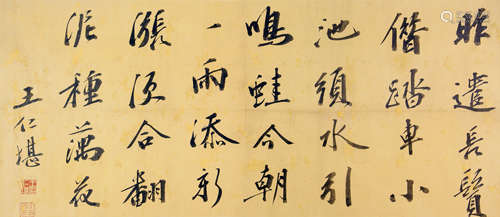 昨遣長鬚
借踏車小
池須水引
鳴蛙今朝
一雨添新
漲便合翻
泥種藕花
王仁堪